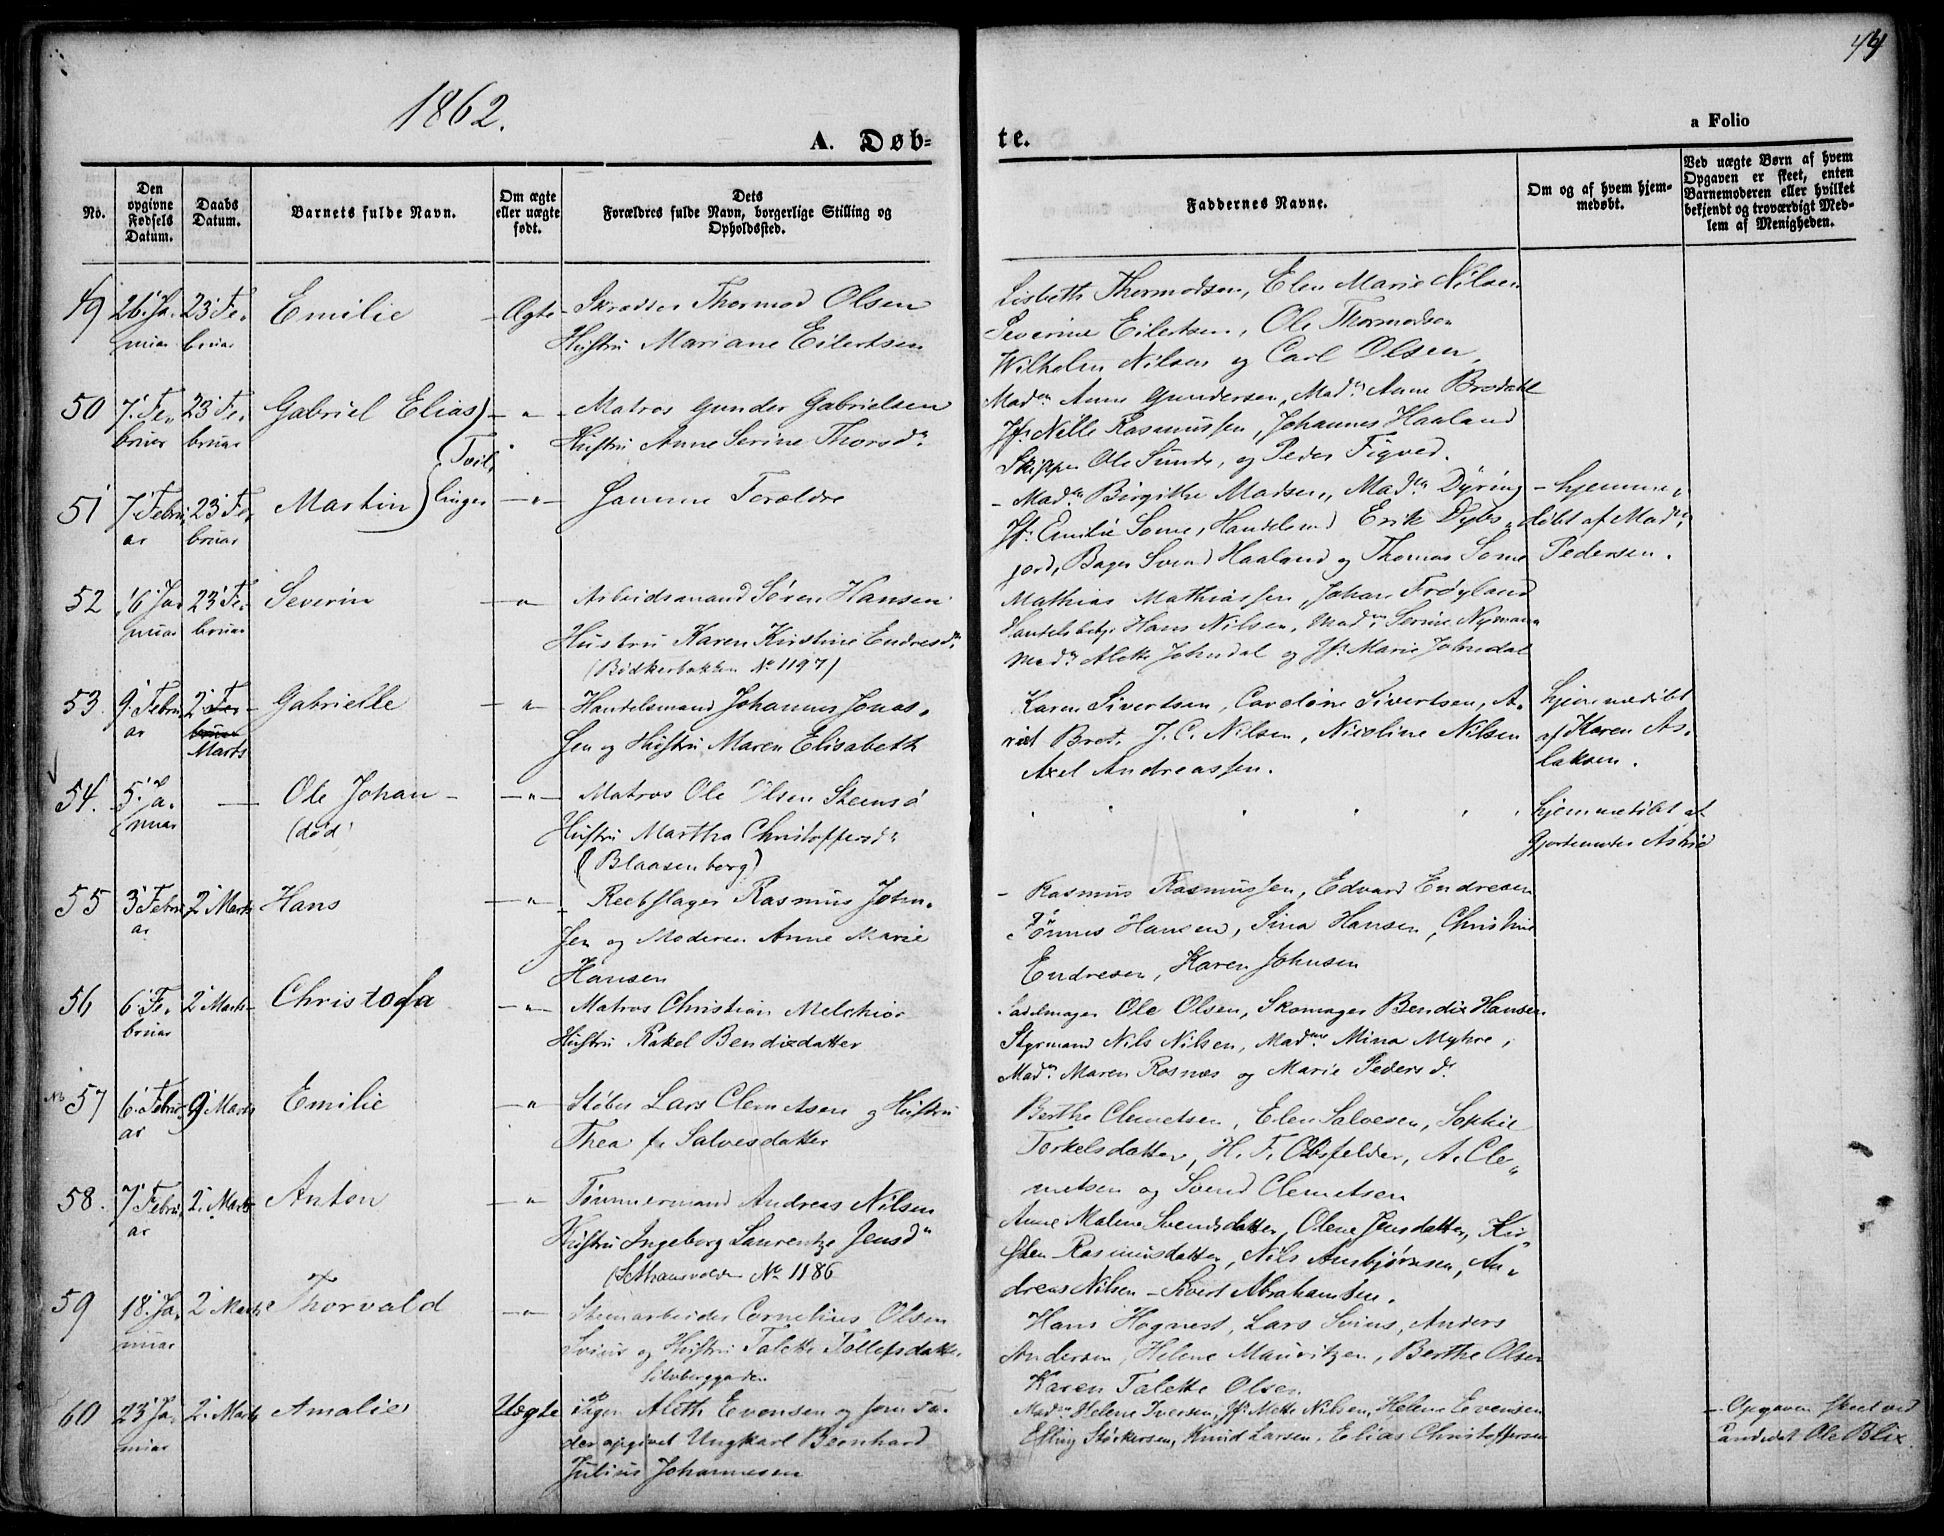 44
1862.
a Folio
A. Døb-
te.
No.
Den opgivne Fødsels Datum.
Daabs Datum.
Barnets fulde Navn.
Om ægte eller uægte født.
Dets
Forældres fulde Navn, borgerlige Stilling og
Opholdssted.
Faddernes Navne.
Om og af hvem hjem-
medøbt.
Ved uægte Børn af hvem
Opgaven er skeet, enten
Barnemoderen eller hvilket
bekjendt og troværdigt Med-
lem af Menigheden.
49 26. Ja- 23 Fe- Emilie Ægte Skrædder Thormod Olsen
nuar bruar Hustru Mariane Eilertsen
Lisbeth Thormodsen, Elen Marie Nilsen
Severine Eilertsen, Ole Thormodsen
Wilhelm Nilsen og Carl Olsen.
50 7. Fe- 23 Fe- Gabriel Elias) - " - Matros Gunder Gabrielsen
bruar bruar Tvil- Hustru Anne Serine Thorsd.
Madm Anne Gundersen, Madm Anne Brodahl
Jfr. Nille Rasmussen, Johannes Haaland
Skipper Ole Sunde, og Peder Figved.
51 7 Febru 23 Fe- Martin) linger - " - Samme Forældre
ar bruar
- Madm Birgithe Madsen, Madm Dyring - hjemme-
Jfr. Emilie Somme, Handelsmd Erik Dybs- døbt af Madm
jord, Bager Svend Haaland og Thomas Some Pedersen.
52 16 Ja 23 Fe- Severin - " - Arbeidsmand Søren Hansen
nuar bruar Hustru Karen Kirstine Endresd.
(Bødkerbakken No 1197)
Mathias Mathiassen, Johan Frøyland
Handelsbetj. Hans Nilsen, Madm Serine Nymann
Madm Alette Johndal og Jfr. Marie Johndal
53. 9. Febru 2 Fe- Gabrielle - " - Handelsmand Johannes Jonas-
ar bruar Marts sen og Hustru Maren Elisabeth
Karen Sivertsen, Caroline Sivertsen, A- hjemmedøbt
Bret. J. C. Nilsen, Nicoline Nilsen af Karen As-
Axel Andreassen. laksen.
54. 5. Ja- — Ole Johan - - " - Matros Ole Olsen Steensø
nuar (død) Hustru Martha Christoffersd.
(Blaasenborg)
" " " " hjemmedøbt af
Gjordemoder Astrid
55 3 Febru 2 Marts Hans - " - Reebslager Rasmus John-
ar sen og Moderen Anne Marie
Hansen
- Rasmus Rasmussen, Edvard Endresen
Tönnes Hansen, Sina Hansen, Christine
Endresen, Karen Johnsen
56 6 Fe- 2 Marts Christofa - " - Matros Christian Melchior
bruar Hustru Rakel Bendixdatter
Sadelmager Ole Olsen, Skomager Bendix Hansen
Styrmand Nils Nilsen, Madme Mina Myhre,
Madm Maren Rosnæs og Marie Pedersd.
NB 57 6. Febru 9 Marts Emilie - " - Støber Lars Clemetsen og Hustru
ar Thea f. Salvesdatter
Berthe Clemetsen, Elen Salvesen, Sophie
Torkelsdatter, H. F. Obsfelder, A. Cle-
metsen og Svend Clemetsen
58. 7 Febru 2. Marts Anton - " - Tømmermand Andreas Nilsen
ar Hustru Ingeborg Laurentze Jensd.
(St. Hansvolden No 1186
Anne Malene Svendsdatter, Olene Jensdatter, Kir-
sten Rasmusdatter, Nils Ansbjørnsen, An-
dreas Nilsen - Sivert Abrahamsen.
59 18. Ja- 2 Marts Thorvald - " - Steenarbeider Cornelius Olsen
nuar Sviur og Hustru Talette Tollefsdatter
Silvberggaden
Hans Hognest, Lars Sviur, Anders
Andersen, Helene Mauritzen, Berthe Olsen
Karen Talette Olsen
60 23 Ja- 2. Marts Amalie Uægte Pigen Aleth Evensen og som Fa-
nuar der opgivet Ungkarl Bernhard
Julius Johannesen
Madm Helene Iversen, Jfr. Mette Nilsen, Helene Evensen
Efling Størkersen, Knud Larsen, Elias Christoffersen
- Opgaven skeet ved
Candidat Ole Blix.